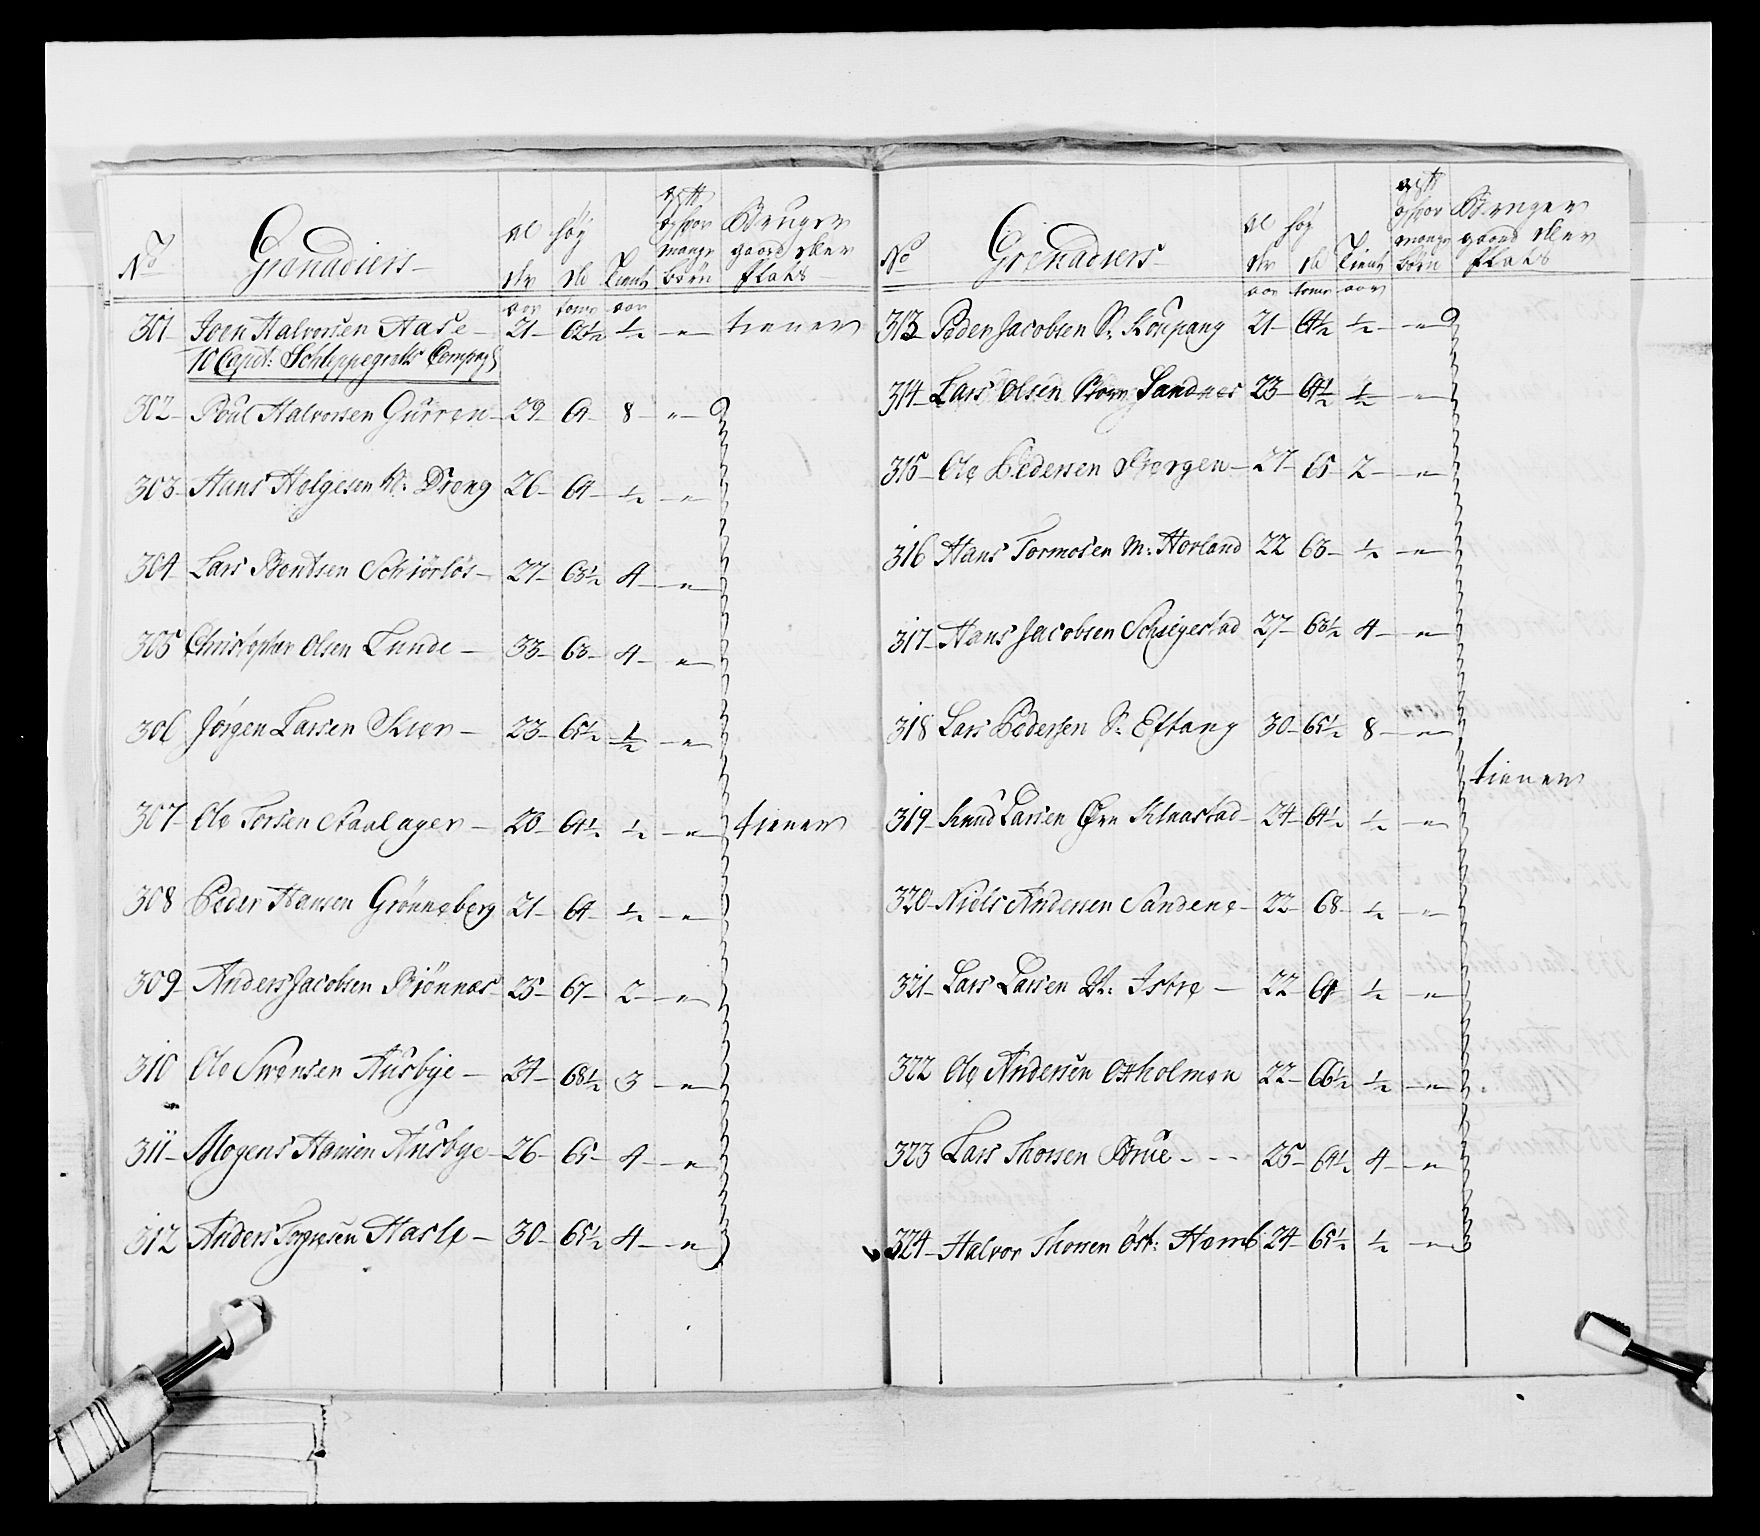 No Grenadiers al der høy de tient gift og hvor mange børn Bruger gaard eller plads
aar tomr aar
301 Joen Halvorsen Aase 21 63½ ½ " tiener
K Capit: Schleppegrells Compag:
302 Poul Halvorsen Gurren 29 64 8 "
303 Hans Helgesen N: Dreng 26 64 ½ "
304 Lars Bentsen Schiörlös 27 63½ 4 "
305 Christopher Olsen Lunde 33 63 4 "
306 Jörgen Larsen Skier 23 65½ ½ "
307 Ole Torsen Staalager 20 64½ ½ " tiener
308 Peder Hansen Grönneberg 21 64 ½ "
309 Anders Jacobsen Biönnes 25 67 2 "
310 Ole Svensen Ausbye 24 68½ 3 "
311 Mogens Hansen Ausbye 26 65 4 "
312 Anders Torgiesen Hasle 30 65½ 4 "
No Grenadiers al der høy de tient gift og hvor mange børn Bruger gaard eller plads
aar tomr aar
313 Peder Jacobsen S: Koupang 21 64½ ½ "
314 Lars Olsen Sandnes 23 64½ ½ "
315 Ole Pedersen Bergen 27 65 2 "
316 Hans Tormosen M: Havland 22 63 ½ "
317 Hans Jacobsen Schiegestad 27 63½ 4 "
318 Lars Pedersen S: Eftang 30 65½ 8 "
tiener
319 Knud Larsen Øvre Klaastad 24 64½ ½ "
320 Niels Andersen Sandene 22 68 ½ "
321 Lars Larsen W: Istre 22 64 ½ "
322 Ole Andersen Oxholmen 22 66½ ½ "
323 Lars Thorsen Brue 25 64½ 4 "
324 Halvor Thorsen Öst: Hamb 24 65½ ½ "